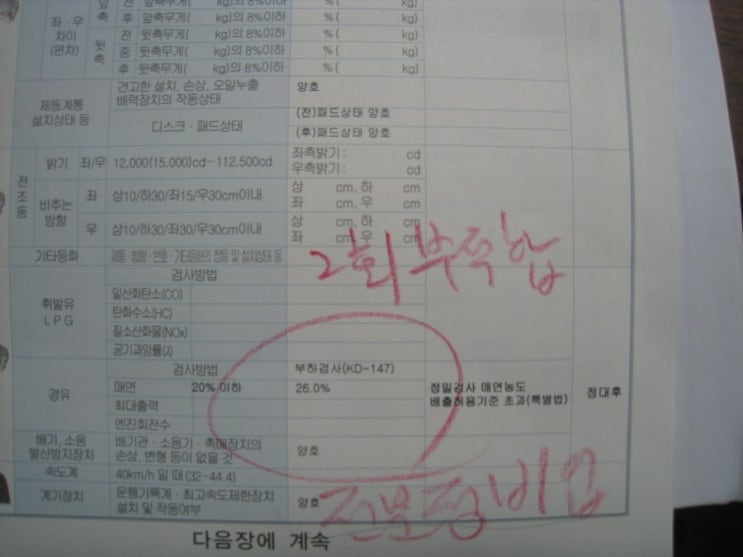 축 전 앞축무게( kg)의 8%이하 %( kg)
후 앞축무게( kg)의 8%이하 %( kg)
좌·우 차이 (편차) 뒷축 전 뒷축무게( kg)의 8%이하 %( kg)
중 뒷축무게( kg)의 8%이하 %( kg)
후 뒷축무게( kg)의 8%이하 %( kg)
제동계통 설치상태 등 견고한 설치, 손상, 오일누출
배력장치의 작동상태 양호
디스크·패드상태 (전)패드상태 양호
(후)패드상태 양호
전조등 밝기 좌/우 12,000(15,000)cd-112,500cd 좌측밝기: cd
우측밝기: cd
비추는 방향 좌 상10/하30/좌15/우30cm이내 상 cm, 하 cm
좌 cm, 우 cm
우 상10/하30/좌30/우30cm이내 상 cm, 하 cm
좌 cm, 우 cm
2회 부적합
기타등화
검사방법
휘발유 LPG 일산화탄소(CO)
탄화수소(HC)
질소산화물(NOx)
공기과잉률(λ)
검사방법 부하검사(KD-147)
경유 매연 20% 이하 26.0% 정밀검사 매연농도
배출허용기준 초과(특별법) 정대후
최대출력
엔진회전수
배기, 소음 발산방지장치 배기관·소음기·촉매장치의
손상, 변형 등이 없을 것 양호
속도계 40km/h 일 때(32-44.4)
계기장치 운행기록계·최고속도제한장치
설치 및 작동여부 양호
다음장에 계속